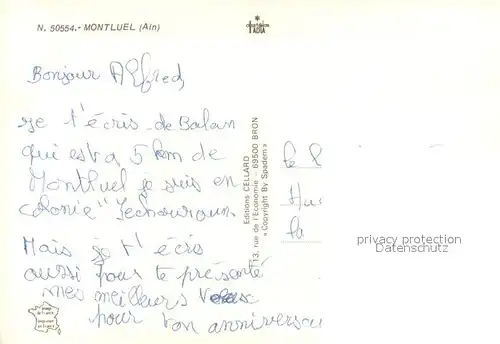 N. 50554.- MONTLUEL (Ain)
Bonjour Alfred,
je t'écris de Balan
qui est a 5 km de
Montluel je suis en
colonie
Mais je t'écris
aussi pour te présenté
mes meilleurs Vœux
pour ton anniversai
Editions CELLARD
13, rue de l'Economie - 69500 BRON
« Copyright By Spadem »
privacy protection
Datenschutz